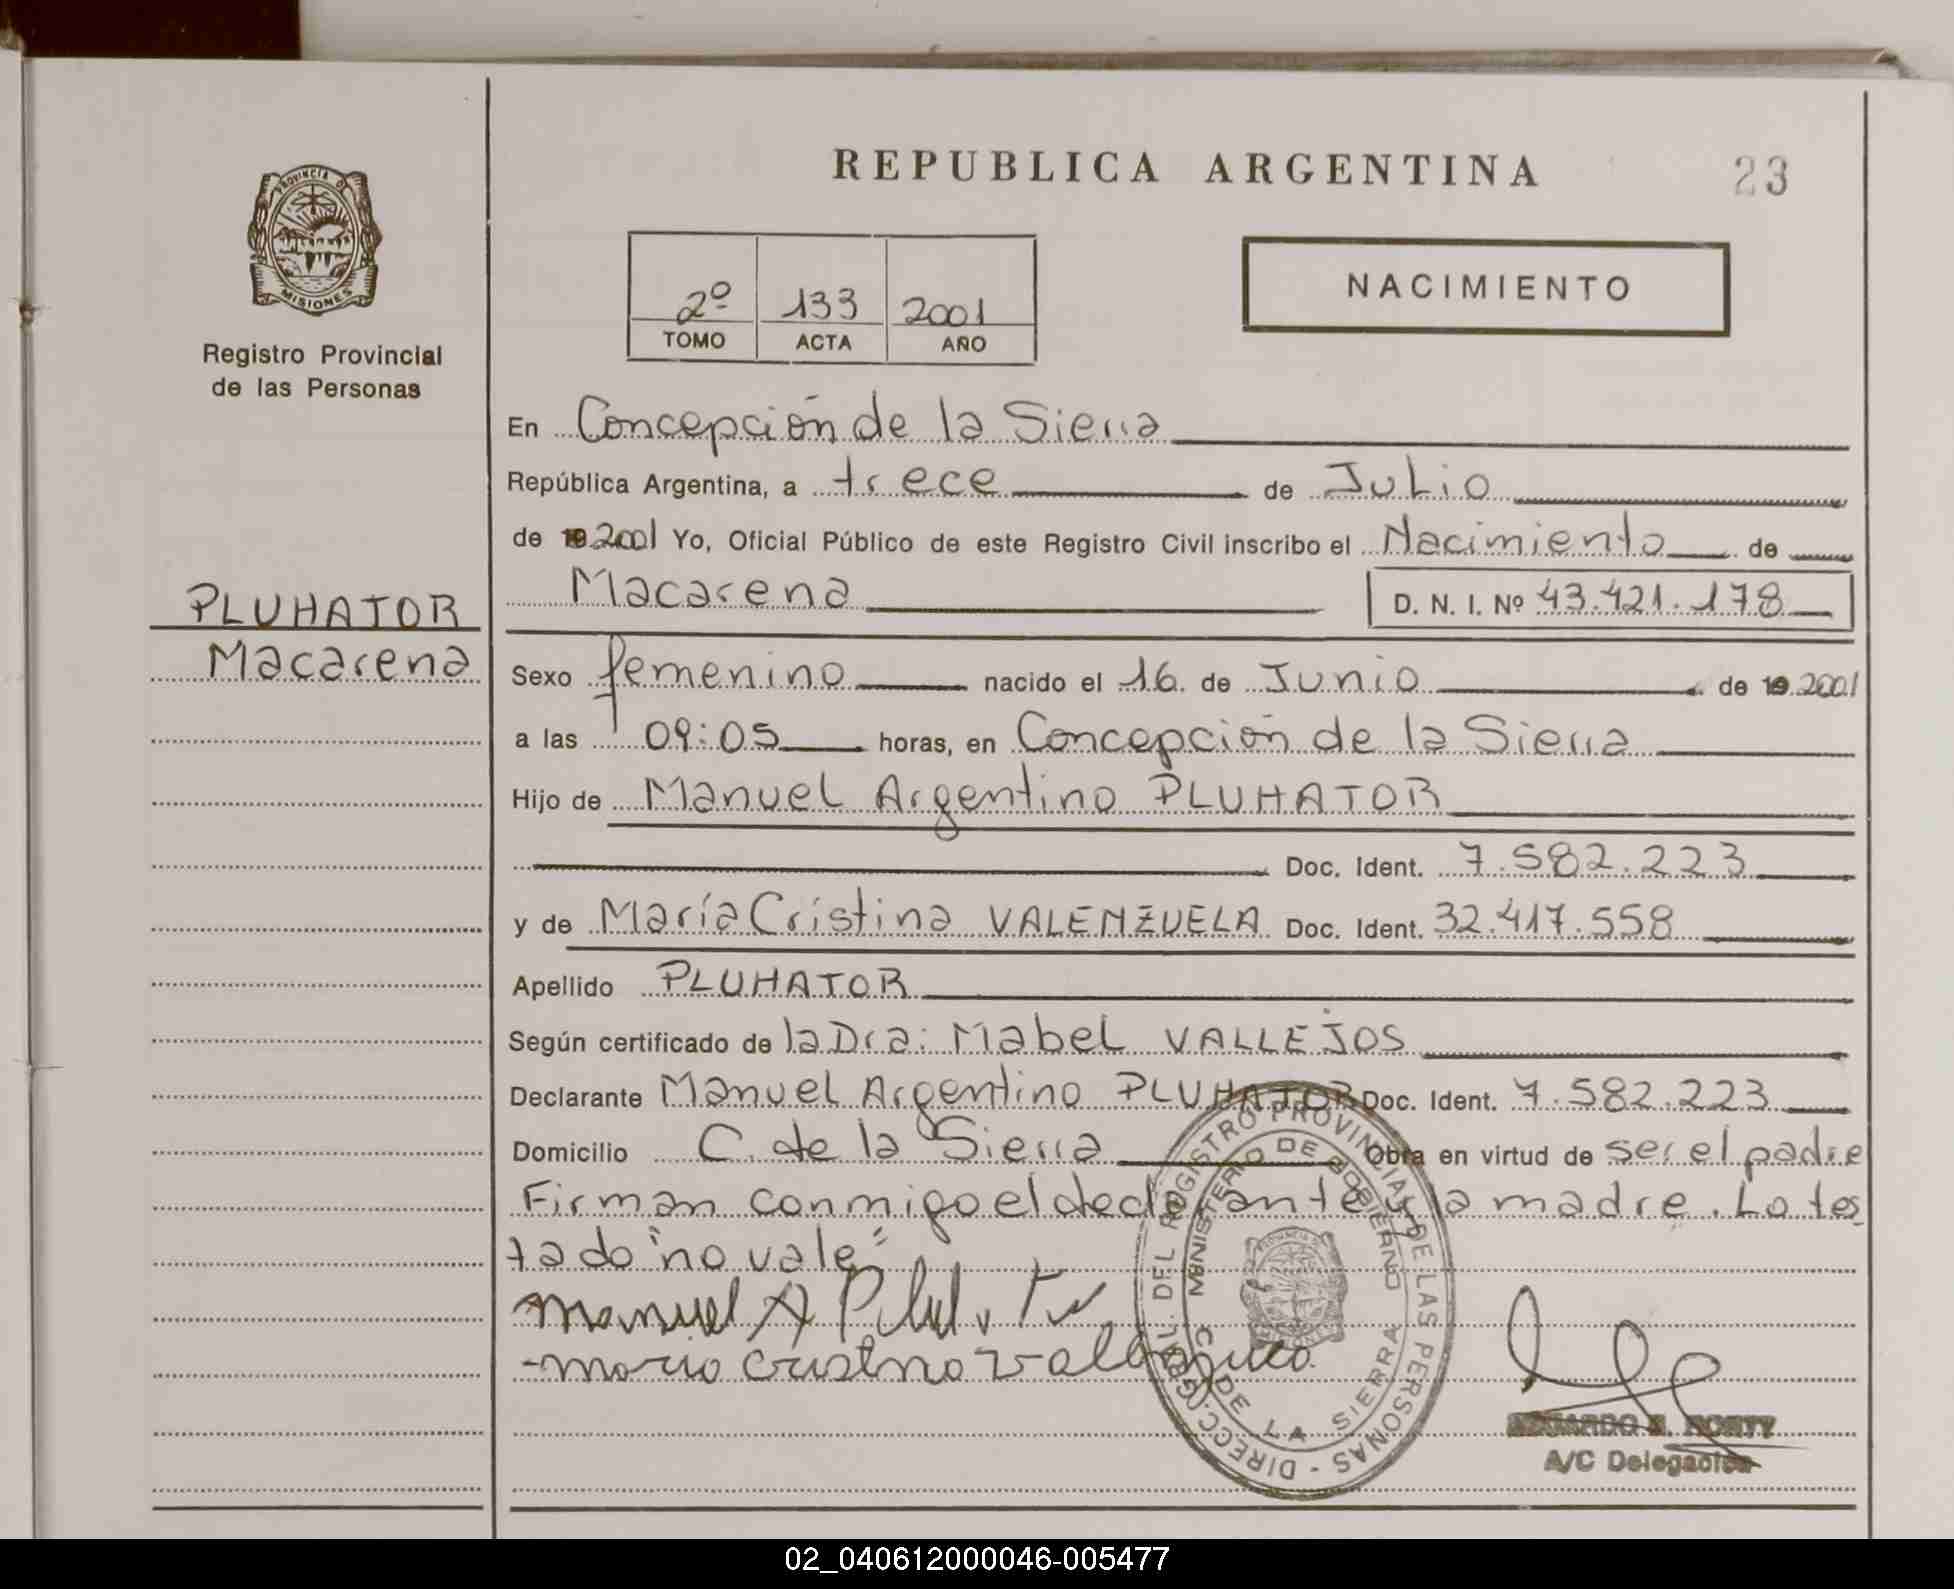 REPUBLICA ARGENTINA 23
PROVINCIA DE
MISIONES
Registro Provincial
de las Personas
2º 133 2001
TOMO ACTA AÑO
NACIMIENTO
En Concepción de la Sierra
República Argentina, a trece de Julio
de 19 2001 Yo, Oficial Público de este Registro Civil inscribo el Nacimiento de
Macarena D. N. I. Nº 43.421.178
PLUHATOR
Macarena
Sexo femenino nacido el 16 de Junio de 19 2001
a las 09:05 horas, en Concepción de la Sierra
Hijo de Manuel Argentino PLUHATOR
Doc. Ident. 7.582.223
y de María Cristina VALENZUELA Doc. Ident. 32.417.558
Apellido PLUHATOR
Según certificado de la Dra: Mabel VALLEJOS
Declarante Manuel Argentino PLUHATOR Doc. Ident. 7.582.223
Domicilio C. de la Sierra Obra en virtud de ser el padre
Firman conmigo el declarante y la madre. Lo tes
tado "no vale"
manuel A
maria cristina
DIRECC. GRAL. DEL REGISTRO PROVINCIAL DE LAS PERSONAS -
MINISTERIO DE GOBIERNO
C. DE LA SIERRA
A/C Delegación
02_040612000046-005477